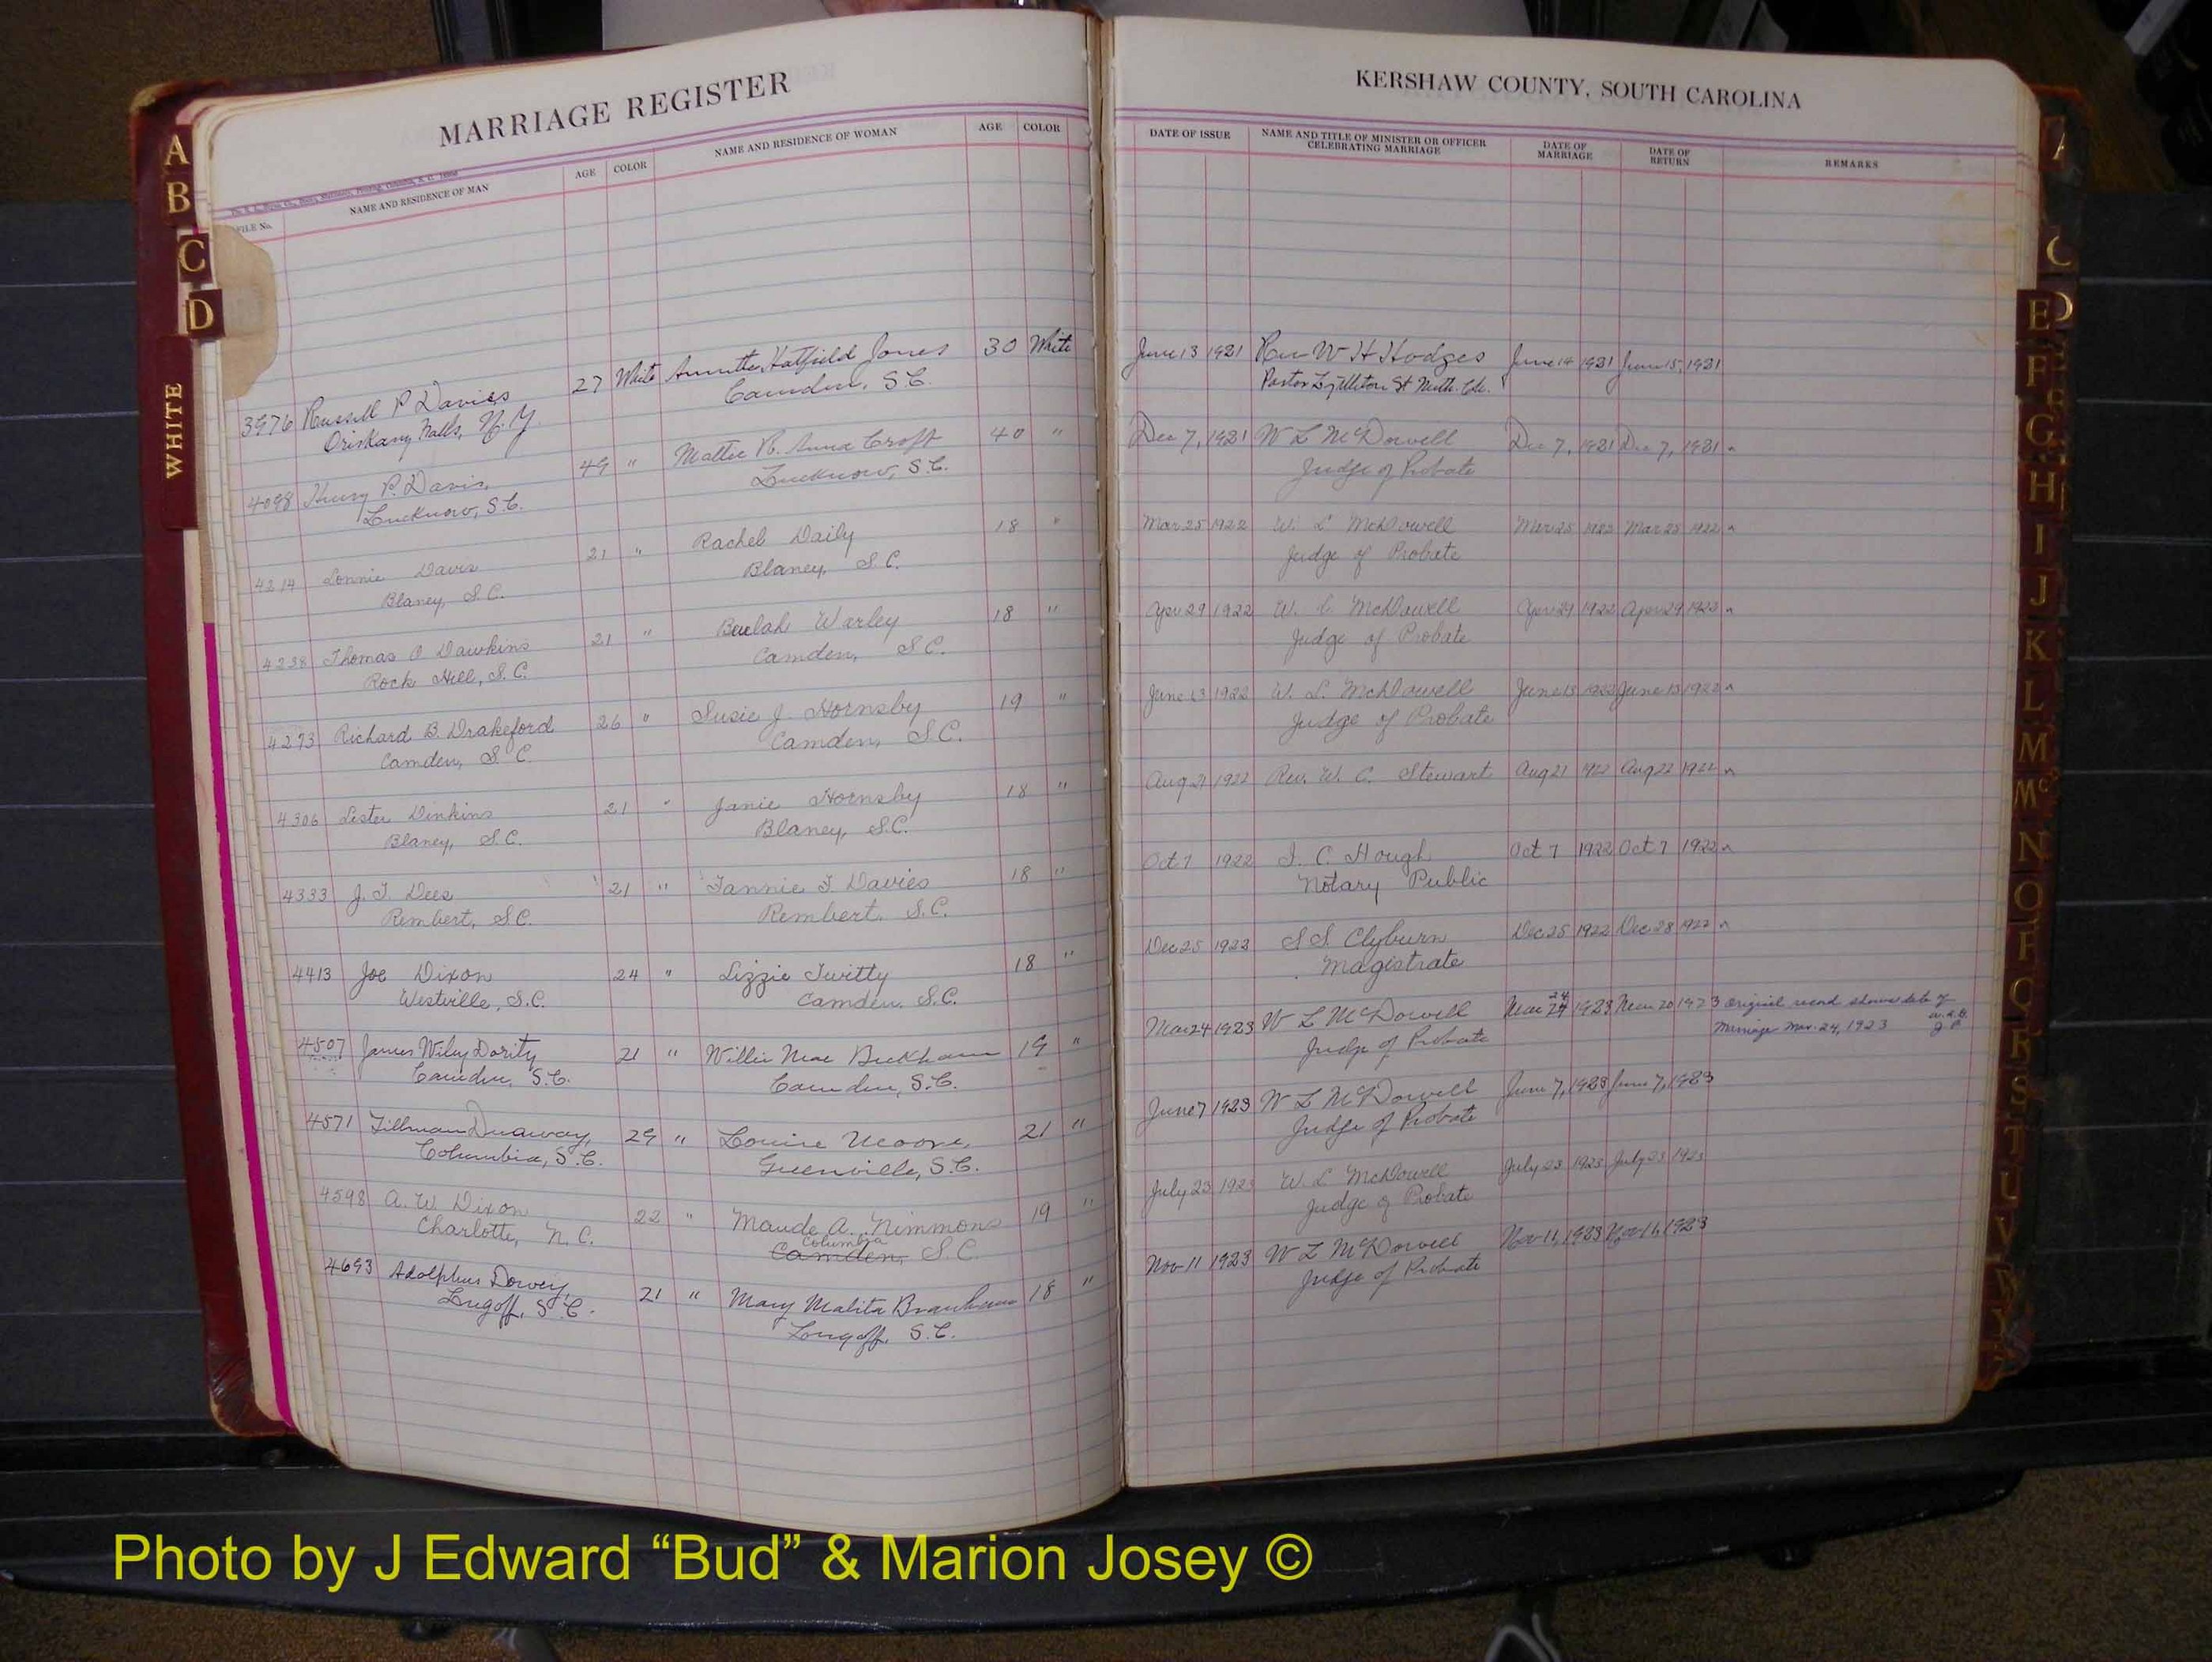 MARRIAGE REGISTER
FILE No. NAME AND RESIDENCE OF MAN AGE COLOR NAME AND RESIDENCE OF WOMAN AGE COLOR
3976 Russell P Davies 27 White Hatfield Jones 30 White
Oriskany Falls, N.Y. Camden, S.C.
4098 Henry P. Davis, 49 " Mattie R. Anna Croft 40 "
Lucknow, S.C. Lucknow, S.C.
4214 Lonnie Davis 21 " Rachel Daily 18 "
Blaney, S.C. Blaney, S.C.
4238 Thomas O Dawkins 21 " Beulah Warley 18 "
Rock Hill, S.C. Camden, S.C.
4273 Richard B. Drakeford 26 " Susie J. Hornsby 19 "
Camden, S.C. Camden, S.C.
4306 Lester Dinkins 21 " Janie Hornsby 18 "
Blaney, S.C. Blaney, S.C.
4333 J. T. Dees 21 " Fannie T Davies 18 "
Rembert, S.C. Rembert, S.C.
4413 Joe Dixon 24 " Lizzie Twitty 18 "
Westville, S.C. Camden, S.C.
4507 James Wiley Dority 21 " Willie Mae Beckham 19 "
Camden, S.C. Camden, S.C.
4571 Tillman Dunaway, 29 " Louise Moore, 21 "
Columbia, S.C. Greenville, S.C.
4598 A. W. Dixon 22 " Maude A. Nimmons 19 "
Charlotte, N.C. Columbia
Camden, S.C.
4693 Adolphus Dowey, 21 " Mary Malita Branham 18 "
Lugoff, S.C. Lugoff, S.C.
KERSHAW COUNTY, SOUTH CAROLINA
DATE OF ISSUE NAME AND TITLE OF MINISTER OR OFFICER CELEBRATING MARRIAGE DATE OF MARRIAGE DATE OF RETURN REMARKS
June 13 1921 Rev W H Hodges June 14 1921 June 15, 1921
Pastor Lyttleton St Meth. Ch.
Dec 7, 1921 W L McDowell Dec 7, 1921 Dec 7, 1921
Judge of Probate
Mar 25 1922 W. L. McDowell Mar 25 1922 Mar 25 1922
Judge of Probate
Apr 29 1922 W. L. McDowell Apr 29 1922 Apr 29 1922
Judge of Probate
June 13 1922 W. L. McDowell June 13 1922 June 13 1922
Judge of Probate
Aug 21 1922 Rev. W. C. Stewart Aug 21 1922 Aug 22 1922
Oct 7 1922 C. Hough Oct 7 1922 Oct 7 1922
Notary Public
Dec 25 1922 S S Clyburn Dec 25 1922 Dec 28 1922
Magistrate
Mar 24 1923 W L McDowell Mar 24 1923 Mar 20 1923 Original record shows date of
Judge of Probate Marriage Mar. 24, 1923 J P
June 7 1923 W L McDowell June 7, 1923 June 7, 1923
Judge of Probate
July 23 1923 W. L McDowell July 23 1923 July 23 1923
Judge of Probate
Nov 11 1923 W L McDowell Nov 11, 1923 1923
Judge of Probate
A
B
C
D
WHITE
E
F
G
H
I
J
K
L
M
Mc
N
O
P
Q
R
S
T
U
V
W
Y
Z
Photo by J Edward “Bud” & Marion Josey ©